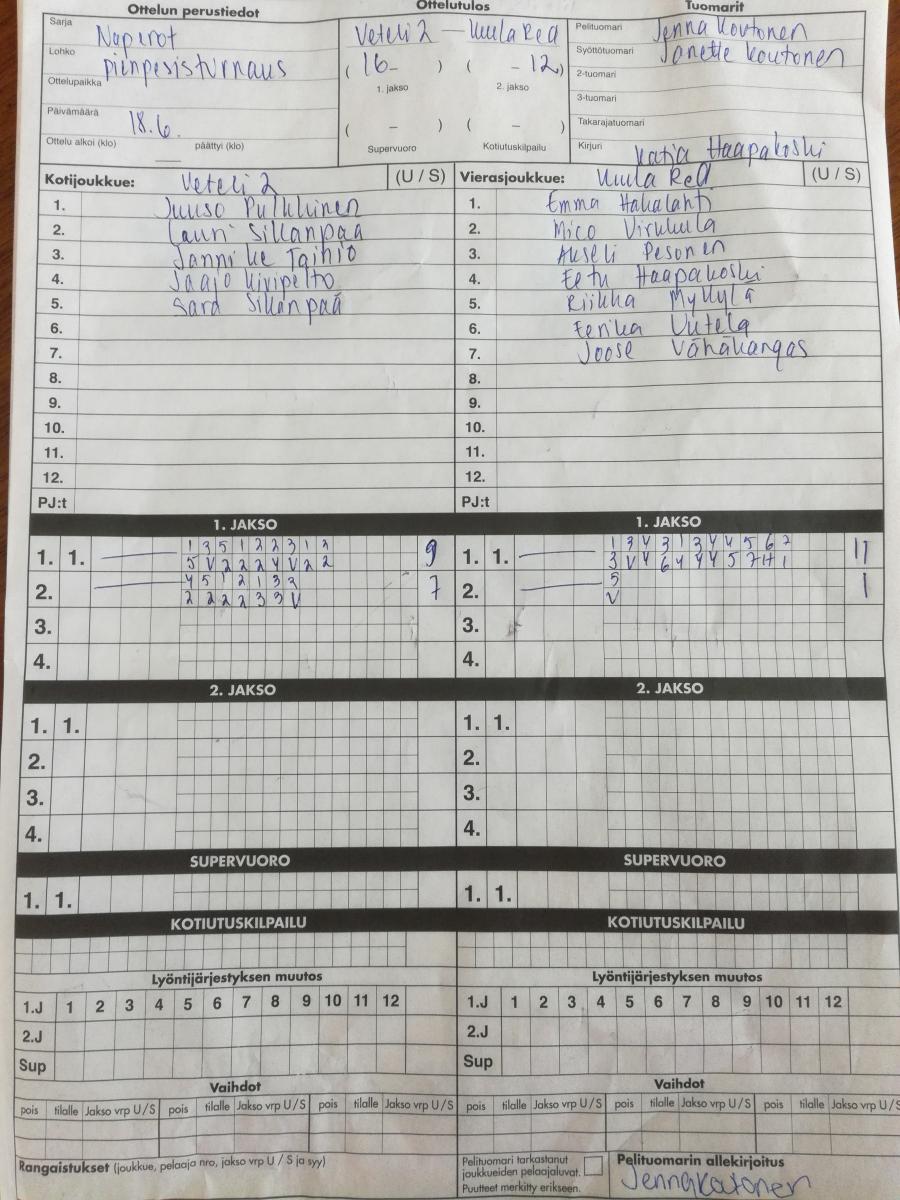 Ottelun perustiedot
Sarja Naperot
Lohko pienpesisturnaus
Ottelupaikka
Päivämäärä 18.6.
Ottelu alkoi (klo) päättyi (klo)
Ottelutulos
Veteli 2 – Uula Red
( 16 – ) ( – 12 )
1. jakso 2. jakso
( – ) ( – )
Supervuoro Kotiutuskilpailu
Tuomarit
Pelituomari Jenna Koutonen
Syöttötuomari Janette Koutonen
2-tuomari
3-tuomari
Takarajatuomari
Kirjuri Katja Haapakoski
Kotijoukkue: Veteli 2 (U / S)
1. Juuso Pulkkinen
2. Lauri Sillanpää
3. Jannike Taihio
4. Jaajo Kivipelto
5. Sara Sillanpää
6.
7.
8.
9.
10.
11.
12.
PJ:t
Vierasjoukkue: Uula Red (U / S)
1. Emma Hakalahti
2. Mico Virukula
3. Akseli Pesonen
4. Eetu Haapakoski
5. Riikka Myllylä
6. Eerika Uutela
7. Joose Vähäkangas
8.
9.
10.
11.
12.
PJ:t
1. JAKSO
1. 1. 1 3 5 1 2 2 3 1 2 9
5 V 2 2 2 4 V 2 2
2. 4 5 1 2 1 3 2 7
2 2 2 2 3 3 V
3.
4.
1. JAKSO
1. 1. 1 3 4 3 1 3 4 4 5 6 7 11
3 V 4 6 4 4 4 5 7 H 1
2. 5 1
V
3.
4.
2. JAKSO
1. 1.
2.
3.
4.
2. JAKSO
1. 1.
2.
3.
4.
SUPERVUORO
1. 1.
SUPERVUORO
1. 1.
KOTIUTUSKILPAILU
KOTIUTUSKILPAILU
Lyöntijärjestyksen muutos
1.J 1 2 3 4 5 6 7 8 9 10 11 12
2.J
Sup
Lyöntijärjestyksen muutos
1.J 1 2 3 4 5 6 7 8 9 10 11 12
2.J
Sup
Vaihdot
pois tilalle Jakso vrp U / S pois tilalle Jakso vrp U / S pois tilalle Jakso vrp U / S
Vaihdot
pois tilalle Jakso vrp U / S pois tilalle Jakso vrp U / S pois tilalle Jakso vrp U / S
Rangaistukset (joukkue, pelaaja nro, jakso vrp U / S ja syy)
Pelituomari tarkastanut
joukkueiden pelaajaluvat.
Puutteet merkitty erikseen.
Pelituomarin allekirjoitus